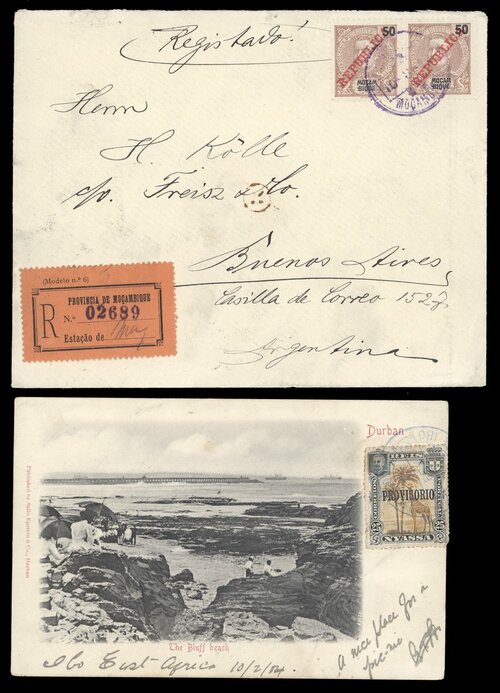 Registado!
50 50
REPUBLICA REPUBLICA
MOÇAM BIQUE MOÇAM BIQUE
Herrn
H. Kölle
c/o. Freisz & Co.
Buenos Aires
Casilla de Correo 1527
Argentina
(Modelo n.º 6)
PROVINCIA DE MOÇAMBIQUE
R N.º 02689
Estação de
Durban
REIS
PROVISORIO
NYASSA
The Bluff beach
Ibo East-Africa 10/2/04
A nice place for a
pic-nic